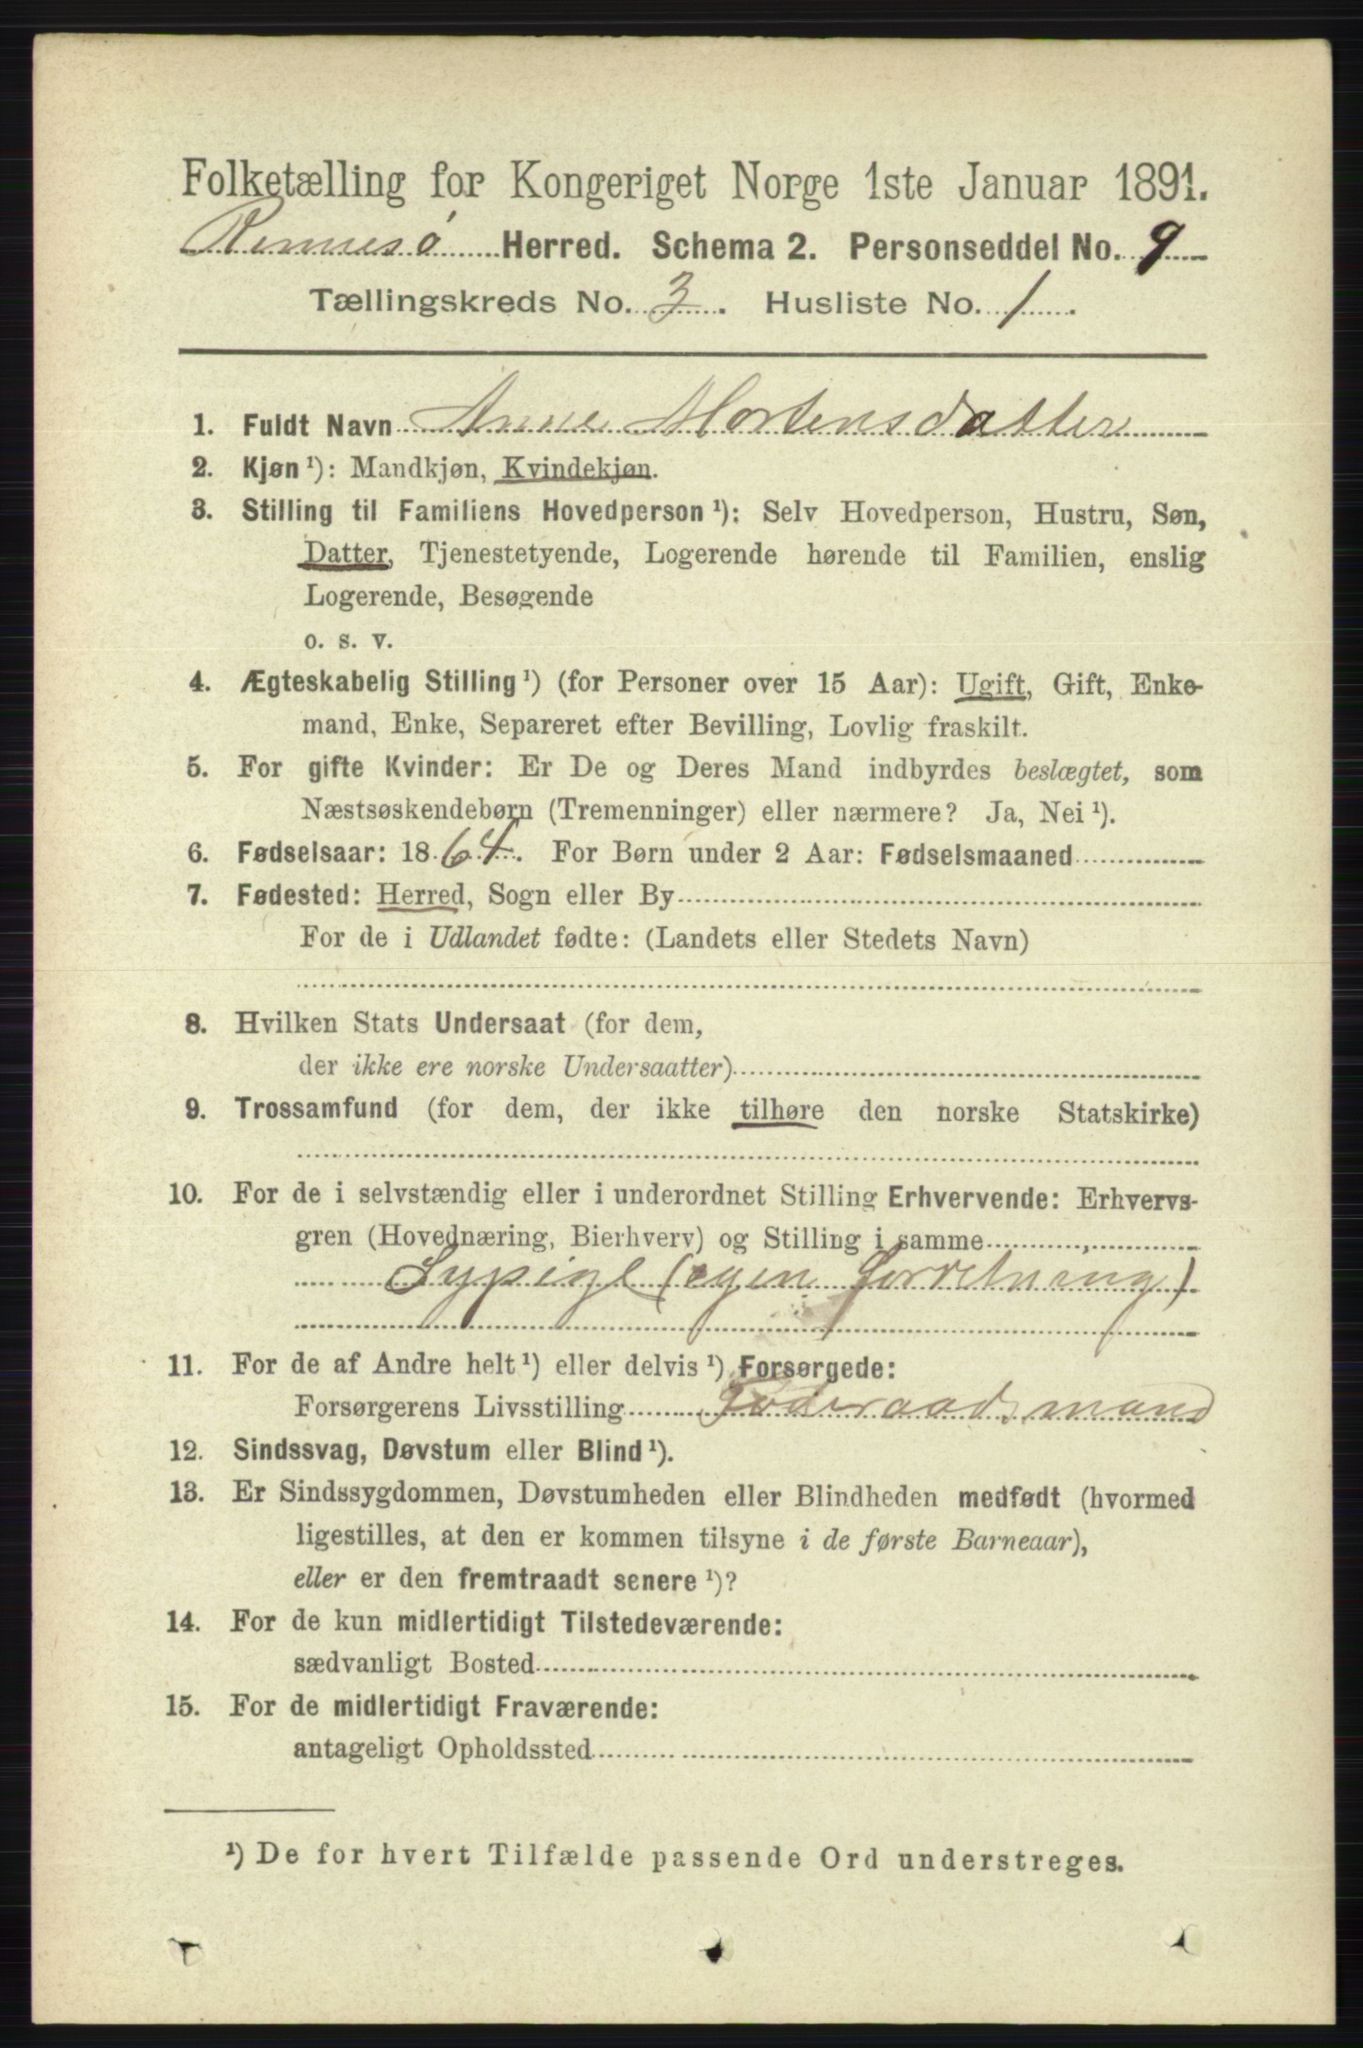 Folketælling for Kongeriget Norge 1ste Januar 1891.
Rennesø Herred. Schema 2. Personseddel No. 9
Tællingskreds No. 3. Husliste No. 1.
1. Fuldt Navn Anne Mortensdatter
2. Kjøn ¹): Mandkjøn, Kvindekjøn.
3. Stilling til Familiens Hovedperson ¹): Selv Hovedperson, Hustru, Søn,
Datter, Tjenestetyende, Logerende hørende til Familien, enslig
Logerende, Besøgende
o. s. v.
4. Ægteskabelig Stilling ¹) (for Personer over 15 Aar): Ugift, Gift, Enke-
mand, Enke, Separeret efter Bevilling, Lovlig fraskilt.
5. For gifte Kvinder: Er De og Deres Mand indbyrdes beslægtet, som
Næstsøskendebørn (Tremenninger) eller nærmere? Ja, Nei ¹).
6. Fødselsaar: 1864. For Børn under 2 Aar: Fødselsmaaned
7. Fødested: Herred, Sogn eller By
For de i Udlandet fødte: (Landets eller Stedets Navn)
8. Hvilken Stats Undersaat (for dem,
der ikke ere norske Undersaatter)
9. Trossamfund (for dem, der ikke tilhøre den norske Statskirke)
10. For de i selvstændig eller i underordnet Stilling Erhvervende: Erhvervs-
gren (Hovednæring, Bierhverv) og Stilling i samme
Sypige (egen Forretning)
11. For de af Andre helt ¹) eller delvis ¹) Forsørgede:
Forsørgerens Livsstilling Føderaadsmand
12. Sindssvag, Døvstum eller Blind ¹).
13. Er Sindssygdommen, Døvstumheden eller Blindheden medfødt (hvormed
ligestilles, at den er kommen tilsyne i de første Barneaar),
eller er den fremtraadt senere ¹)?
14. For de kun midlertidigt Tilstedeværende:
sædvanligt Bosted
15. For de midlertidigt Fraværende:
antageligt Opholdssted
¹) De for hvert Tilfælde passende Ord understreges.